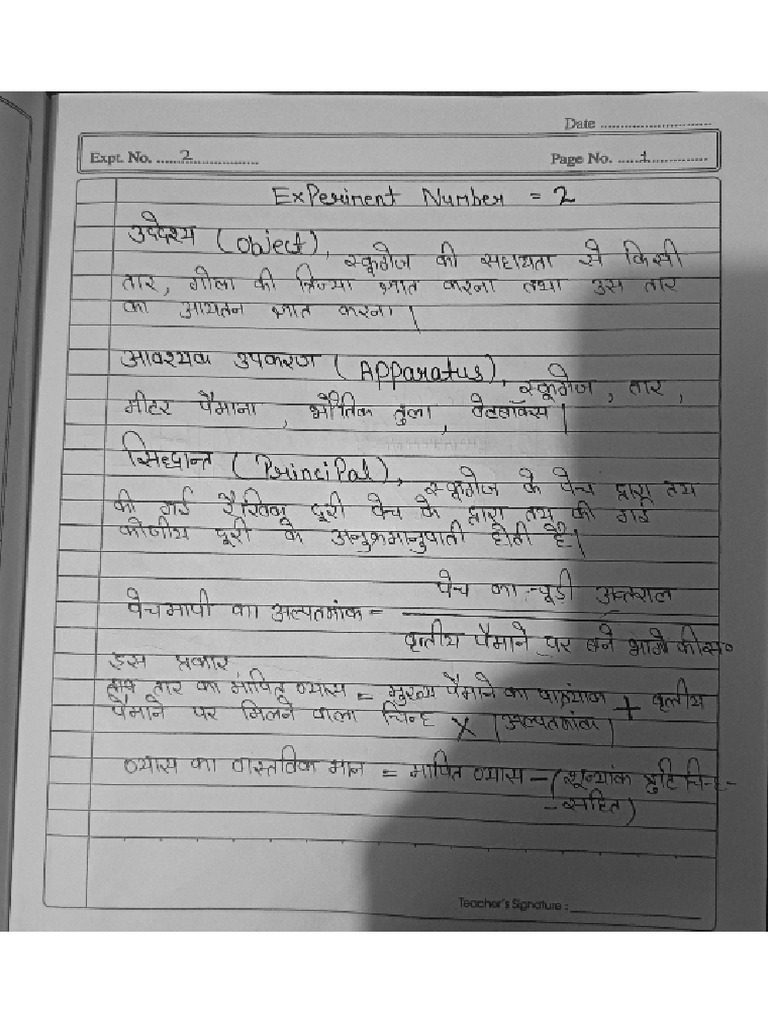 Date
Expt. No. 2
Page No. 1
Experiment Number = 2
उद्देश्य (object), स्क्रूगेज की सहायता से किसी
तार, गोला की त्रिज्या ज्ञात करना तथा उस तार
का आयतन ज्ञात करना |
आवश्यक उपकरण (Apparatus), स्क्रूगेज, तार,
मीटर पैमाना, भौतिक तुला, वेटबॉक्स |
सिद्धान्त (Principal), स्क्रूगेज के पेच द्वारा तय
की गई रैखिक दूरी पेच के द्वारा तय की गई
कोणीय दूरी के अनुक्रमानुपाती होती है |
पेच का चूड़ी अन्तराल
पेचमापी का अल्पतमांक =
वृत्तीय पैमाने पर बने भागो की सं०
इस प्रकार
तार का मापित व्यास = मुख्य पैमाने का पाठ्यांक + वृत्तीय
पैमाने पर मिलने वाला चिन्ह × (अल्पतमांक)
व्यास का वास्तविक मान = मापित व्यास - (शून्यांक त्रुटि चिन्ह-
-सहित)
Teacher's Signature :